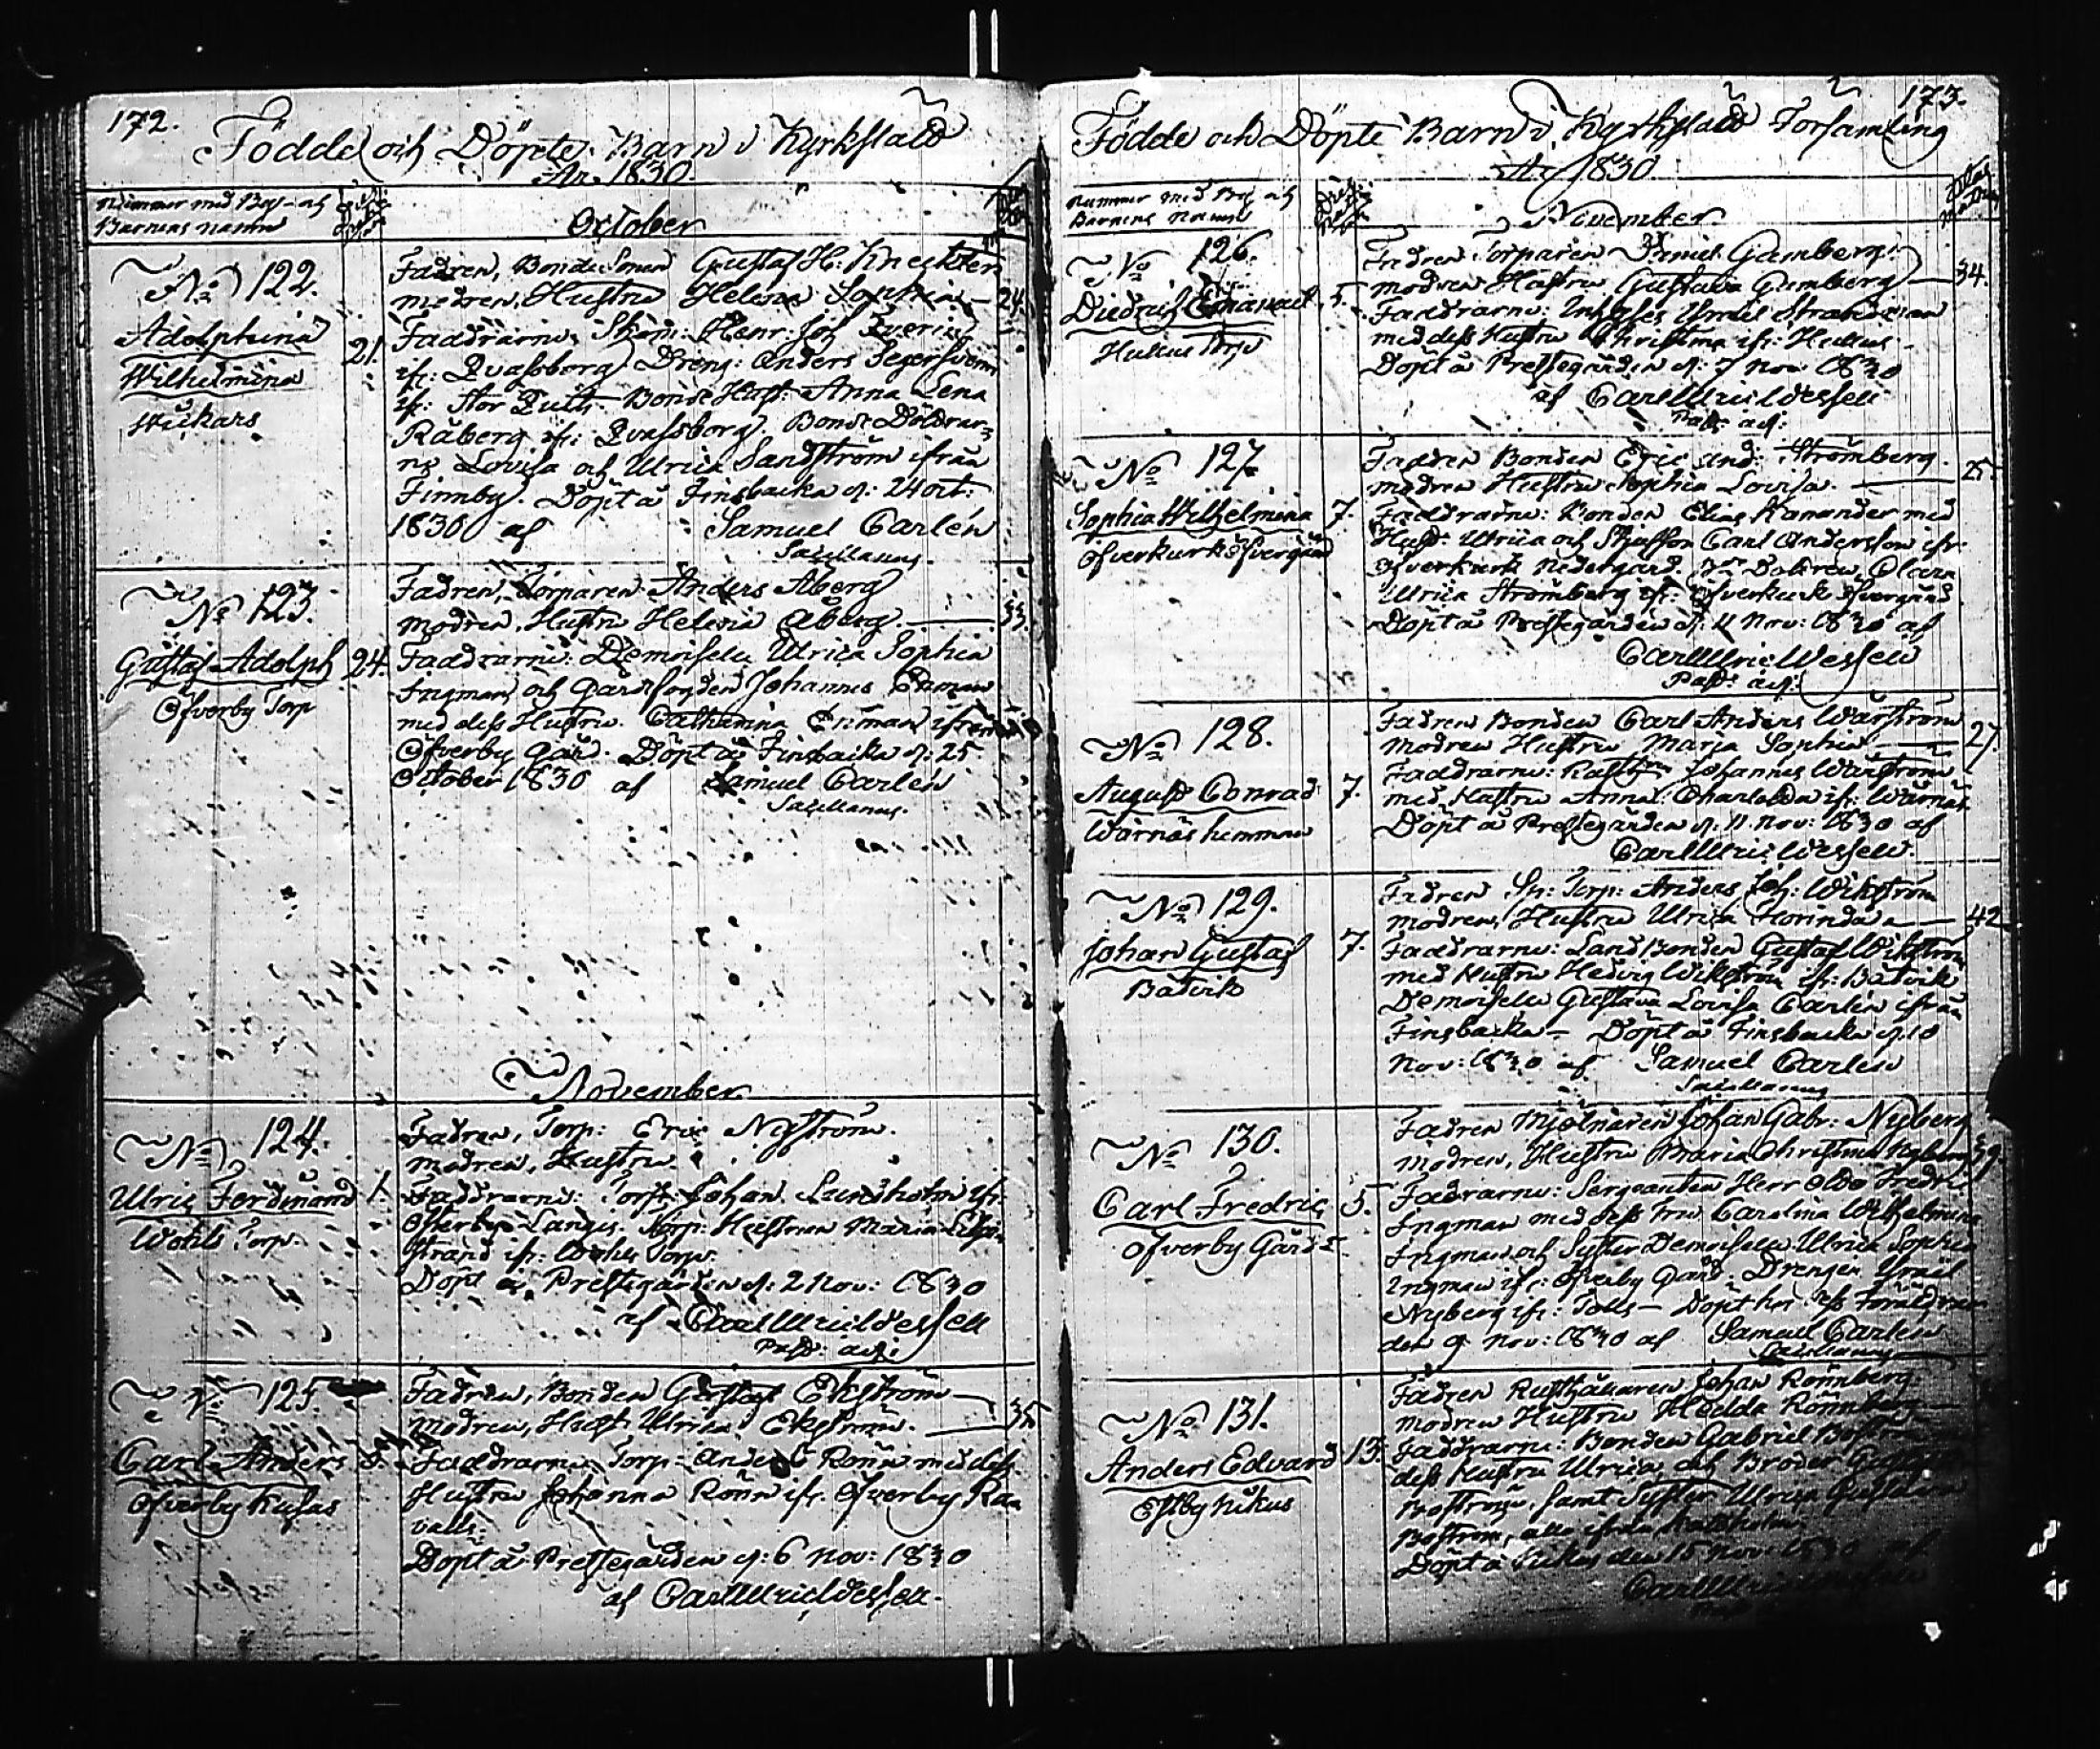 172.
Födde och Döpte Barn i Kyrkslätt
År 1830.
Nummer med Boj- och
Barnens namn
October
No 122.
Adolphina
Wilhelmina
21.
Fadren, Bonde Sonen Gustaf H: Knechten
modren, Hustru Helena Sophia — 24.
Faddrarne, Skom: Henr: Joh
ifr: Qvafsborg Dreng: Anders Segersven
ifr: Stor Bonde Hust: Anna Lena
Råberg ifr: Qvafsborg. Bonde Döttrar-
ne Lovisa och Ulrica Sandström ifrån
Finnby. Döpt å Finsbacka d: 24 oct:
1830 af Samuel Carlén
Sacellanus.
No 123.
Gustaf Adolph
Öfverby Torp
24.
Fadren, Torparen Anders Åberg
modren, Hustru Helena Åberg. — 33.
Faddrarne: Demoiselle Ulrica Sophia
Ingman och Gårdsfogden Johannes Enman
med dess Hustru Catharina Enman ifrån
Öfverby gård. Döpt å Finsbacka d: 25
October 1830 af Samuel Carlén
Sacellanus.
November
No 124.
Ulric Ferdinand
Wohls Torp.
1.
Fadren, Torp: Eric Nyström.
modren, Hustru
Faddrarne: Torp: Johan Lundholm ifr:
Österby Långis. Torp: Hustrun Maria
Strand ifr: Wohls Torp.
Döpt å Prestegården d: 2 Nov: 1830
af Carl Ulric Wessell
Past: adj:
No 125.
Carl Anders
Öfverby Kusas
Fadren, Bonden Gustaf Ekström —
modren, Hust: Ulrica Ekström. — 35
Faddrarne Torp: Anders Rönn med dess
Hustru Johanna Rönn ifr. Öfverby Raa
valls.
Döpt å Prestegården d: 6 Nov: 1830
af Carl Ulric Wessell.
173.
Födde och Döpte Barn i Kyrkslätt Församling
År 1830
Nummer med Boj och
Barnens namn
November
No 126.
Diedrich Emanuel
Torp
5.
Fadren Torparen Gamberg.
modren Hustru Gustava Gamberg — 34.
Faddrarne: Inhyses Strandman
med dess Hustru Christina ifr:
Döpt å Prestegården d: 7 Nov: 1830
af Carl Ulric Wessell
Past: adj:
No 127.
Sophia Wilhelmina
Öfverkurk Öfvergård
7.
Fadren Bonden Eric And: Strömberg.
modren Hustru Sophia Lovisa. — 25.
Faddrarne: Bonden Elias Kanander med
Hust: Ulrica och Andersson ifr:
Öfverkurk Nedergård. Dottren Clara
Ulrica Strömberg ifr: Öfverkurk Öfvergård
Döpt å Prestegården d: 11 Nov: 1830 af
Carl Ulric Wessell
Past: adj:
No 128.
August Conrad
Wärnäs hemman
7.
Fadren Bonden Carl Anders Wärström
modren Hustru Maria Sophia — 27.
Faddrarne: Johannes Wärström
med Hustru Anna Charlotta ifr: Wärnäs.
Döpt å Prestegården d: 11. Nov: 1830 af
Carl Ulric Wessell.
No 129.
Johan Gustaf
Båtvik
7.
Fadren Sk: Torp: Anders Joh: Wikström
modren, Hustru Ulrica Florinda — 42
Faddrarne: Land Bonden Gustaf Wikström
med Hustru Hedvig Wikström ifr: Båtvik
Demoiselle Gustava Lovisa Carlén ifrån
Finsbacka — Döpt å Finsbacka d. 10
Nov: 1830 af Samuel Carlén
Sacellanus
No 130.
Carl Fredric
Öfverby Gård
5.
Fadren Mjölnaren Johan Gabr: Nyberg
modren, Hustru Maria Christina Nyberg 39.
Faddrarne: Sergeanten Herr Otto Fredric
Ingman med dess Fru Carolina Wilhelmina
Ingman och Syster Demoiselle Ulrica Sophia
Ingman ifr: Öfverby Gård. Drengen
Nyberg ifr: Tolls — Döpt hos dess Föräldrar
den 9 Nov: 1830 af Samuel Carlén
Sacellanus
No 131.
Anders Edvard
13.
Fadren Rusthållaren Johan Rönnberg.
modren Hustru Hedda Rönnberg
Faddrarne: Bonden Gabriel Boström
dess Hustru Ulrica, och Broder Gustaf
Boström, samt Syster Ulrica
Boström, alla ifrån
Döpt å den 15 Nov: 1830 af
Carl Ulric Wessell